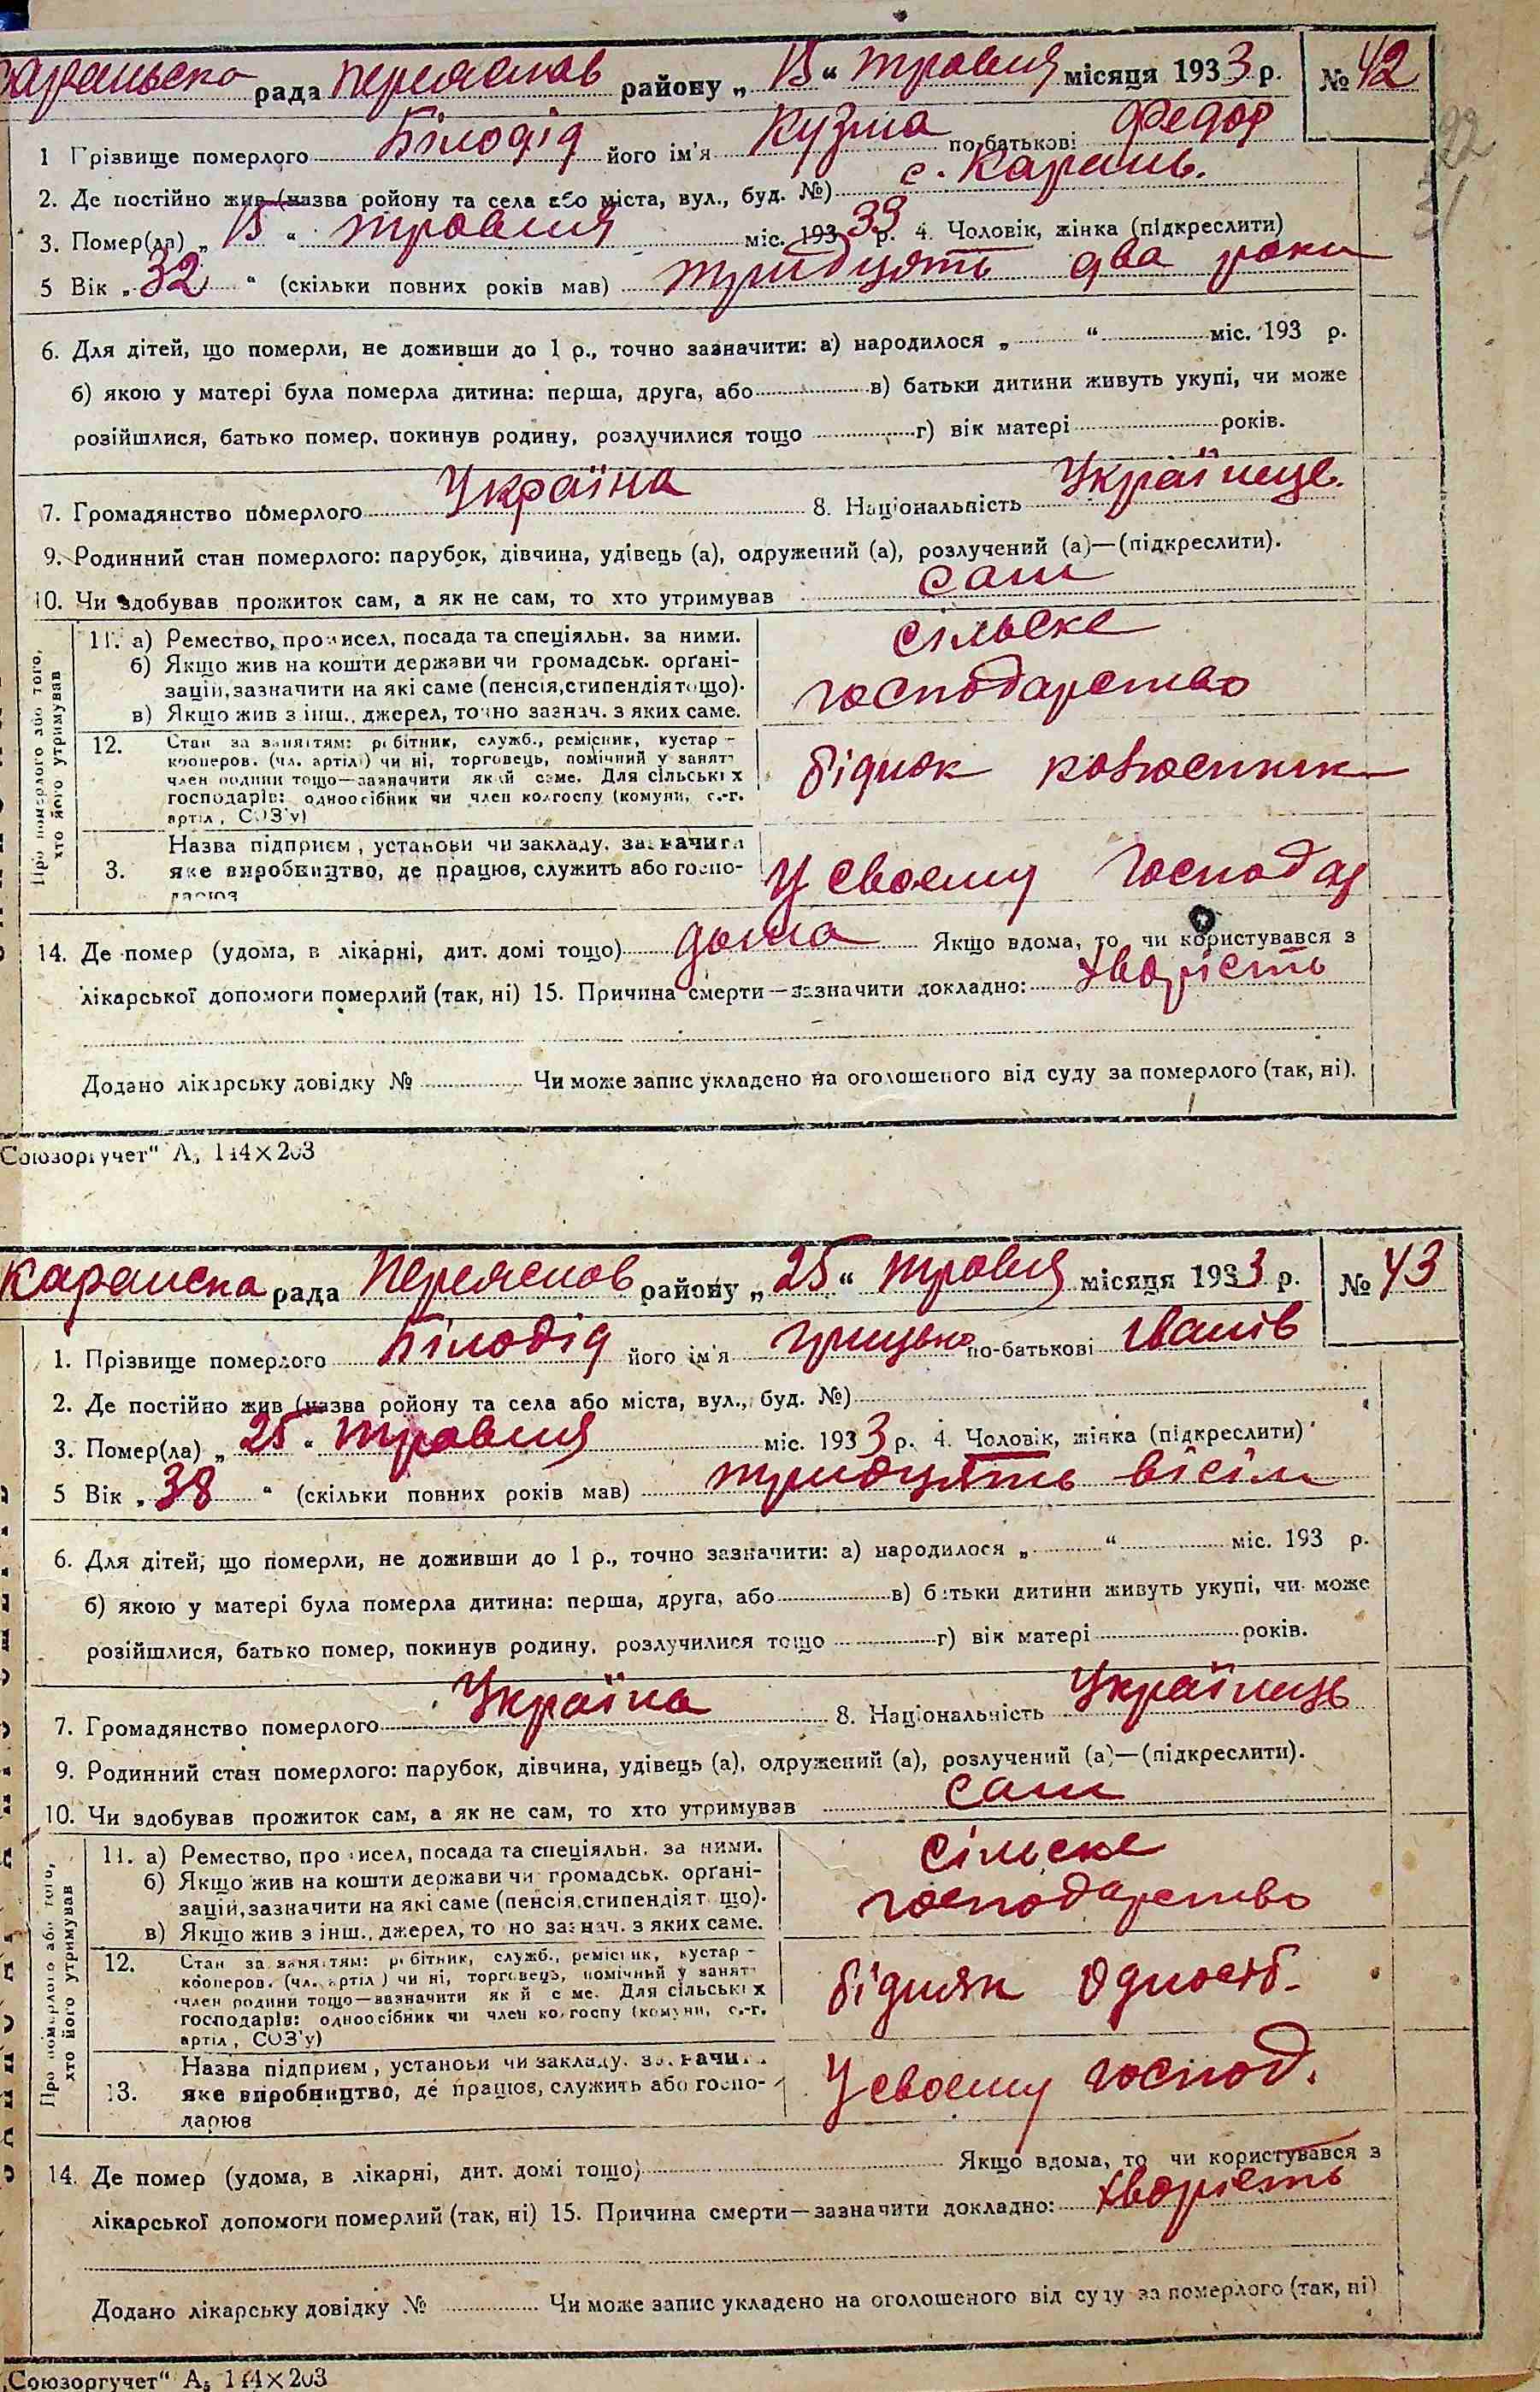 Караньска рада Переяслов району „15“ травня місяця 1933 р. № 42
1 Прізвище померлого Білодід його ім'я Кузма по-батькові Федор
2. Де постійно жив (назва району та села або міста, вул., буд. №) с. Карань.
3. Помер(ла) „15“ травня міс. 1933 р. 4. Чоловік, жінка (підкреслити)
5 Вік „32“ (скільки повних років мав) тридцять два роки
6. Для дітей, що померли, не доживши до 1 р., точно зазначити: а) народилося „ “ міс. 193 р.
б) якою у матері була померла дитина: перша, друга, або в) батьки дитини живуть укупі, чи може
розійшлися, батько помер, покинув родину, розлучилися тощо г) вік матері років.
7. Громадянство померлого Україна 8. Національність Українце.
9. Родинний стан померлого: парубок, дівчина, удівець (а), одружений (а), розлучений (а)—(підкреслити).
10. Чи здобував прожиток сам, а як не сам, то хто утримував сам
Про померлого або того, хто його утримував
11. а) Ремество, промисел, посада та спеціяльн. за ними. сільске
б) Якщо жив на кошти держави чи громадськ. орґані-
зацій, зазначити на які саме (пенсія, стипендія тощо). господарство
в) Якщо жив з інш., джерел, точно зазнач. з яких саме.
12. Стан за заняттям: робітник, служб., ремісник, кустар –
кооперов. (чл. артілі) чи ні, торговець, помічний у занятт
член родини тощо—зазначити який саме. Для сільських
господарів: одноосібник чи член колгоспу (комуни, с.-г.
артіл, СОЗ'у)
бідняк
Назва підприєм, установи чи закладу, зазначити
3. яке виробництво, де працює, служить або госпо-
дарює
У своєму господар
14. Де помер (удома, в лікарні, дит. домі тощо) дома Якщо вдома, то чи користувався з
лікарської допомоги померлий (так, ні) 15. Причина смерти—зазначити докладно: хворість
Додано лікарську довідку № Чи може запис укладено на оголошеного від суду за померлого (так, ні).
Союзоргучет" А5 144×203
Каранска рада Переяслов району „25“ травня місяця 1933 р. № 43
1. Прізвище померлого Білодід його ім'я Грицько по-батькові Іванів
2. Де постійно жив (назва району та села або міста, вул., буд. №)
3. Помер(ла) „25“ травня міс. 1933 р. 4. Чоловік, жінка (підкреслити)
5 Вік „38“ (скільки повних років мав) тридцять вісім
6. Для дітей, що померли, не доживши до 1 р., точно зазначити: а) народилося „ “ міс. 193 р.
б) якою у матері була померла дитина: перша, друга, або в) батьки дитини живуть укупі, чи може
розійшлися, батько помер, покинув родину, розлучилися тощо г) вік матері років.
7. Громадянство померлого Україна 8. Національність Українець
9. Родинний стан померлого: парубок, дівчина, удівець (а), одружений (а), розлучений (а)—(підкреслити).
10. Чи здобував прожиток сам, а як не сам, то хто утримував сам
Про померлого або того, хто його утримував
11. а) Ремество, промисел, посада та спеціяльн. за ними. сільске
б) Якщо жив на кошти держави чи громадськ. орґані-
зацій, зазначити на які саме (пенсія, стипендія тощо). господарство
в) Якщо жив з інш., джерел, точно зазнач. з яких саме.
12. Стан за заняттям: робітник, служб., ремісник, кустар –
кооперов. (чл. артіл) чи ні, торговець, помічний у занятт
член родини тощо—зазначити який саме. Для сільських
господарів: одноосібник чи член колгоспу (комуни, с.-г.
артіл, СОЗ'у)
бідняк Одноосіб.
Назва підприєм, установи чи закладу, зазначи
13. яке виробництво, де працює, служить або госпо-
дарює
У своєму господ.
14. Де помер (удома, в лікарні, дит. домі тощо) Якщо вдома, то чи користувався з
лікарської допомоги померлий (так, ні) 15. Причина смерти—зазначити докладно: хворість
Додано лікарську довідку № Чи може запис укладено на оголошеного від суду за померлого (так, ні)
„Союзоргучет" А5 144×203